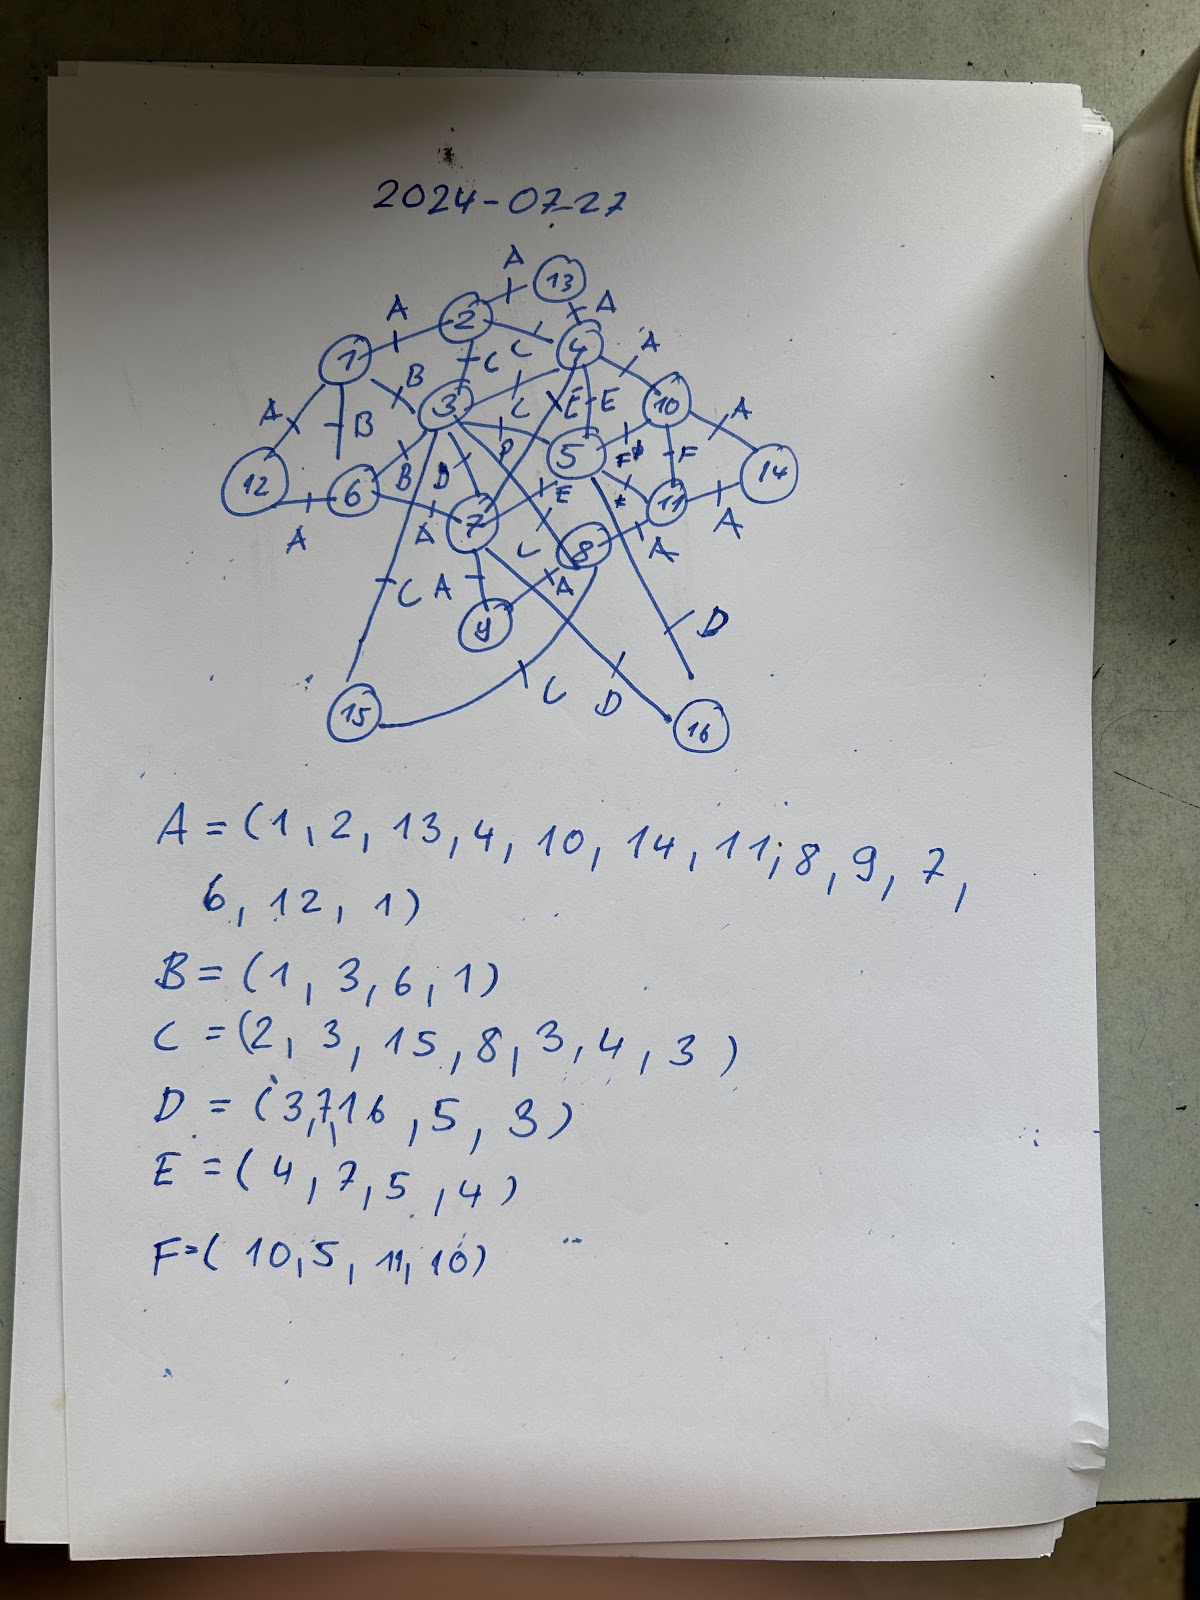 2024-07-27
A 13
A 2 A
1 C C 4 A
B 3 C E E 10 A
A B P 5 F F 14
12 6 B D E 11
A A 7 C 8 A A
C A A
9 D
C D
15 16
A = (1, 2, 13, 4, 10, 14, 11, 8, 9, 7,
6, 12, 1)
B = (1, 3, 6, 1)
C = (2, 3, 15, 8, 3, 4, 3)
D = (3,7,16, 5, 3)
E = (4, 7, 5, 4)
F=( 10,5, 11, 10)